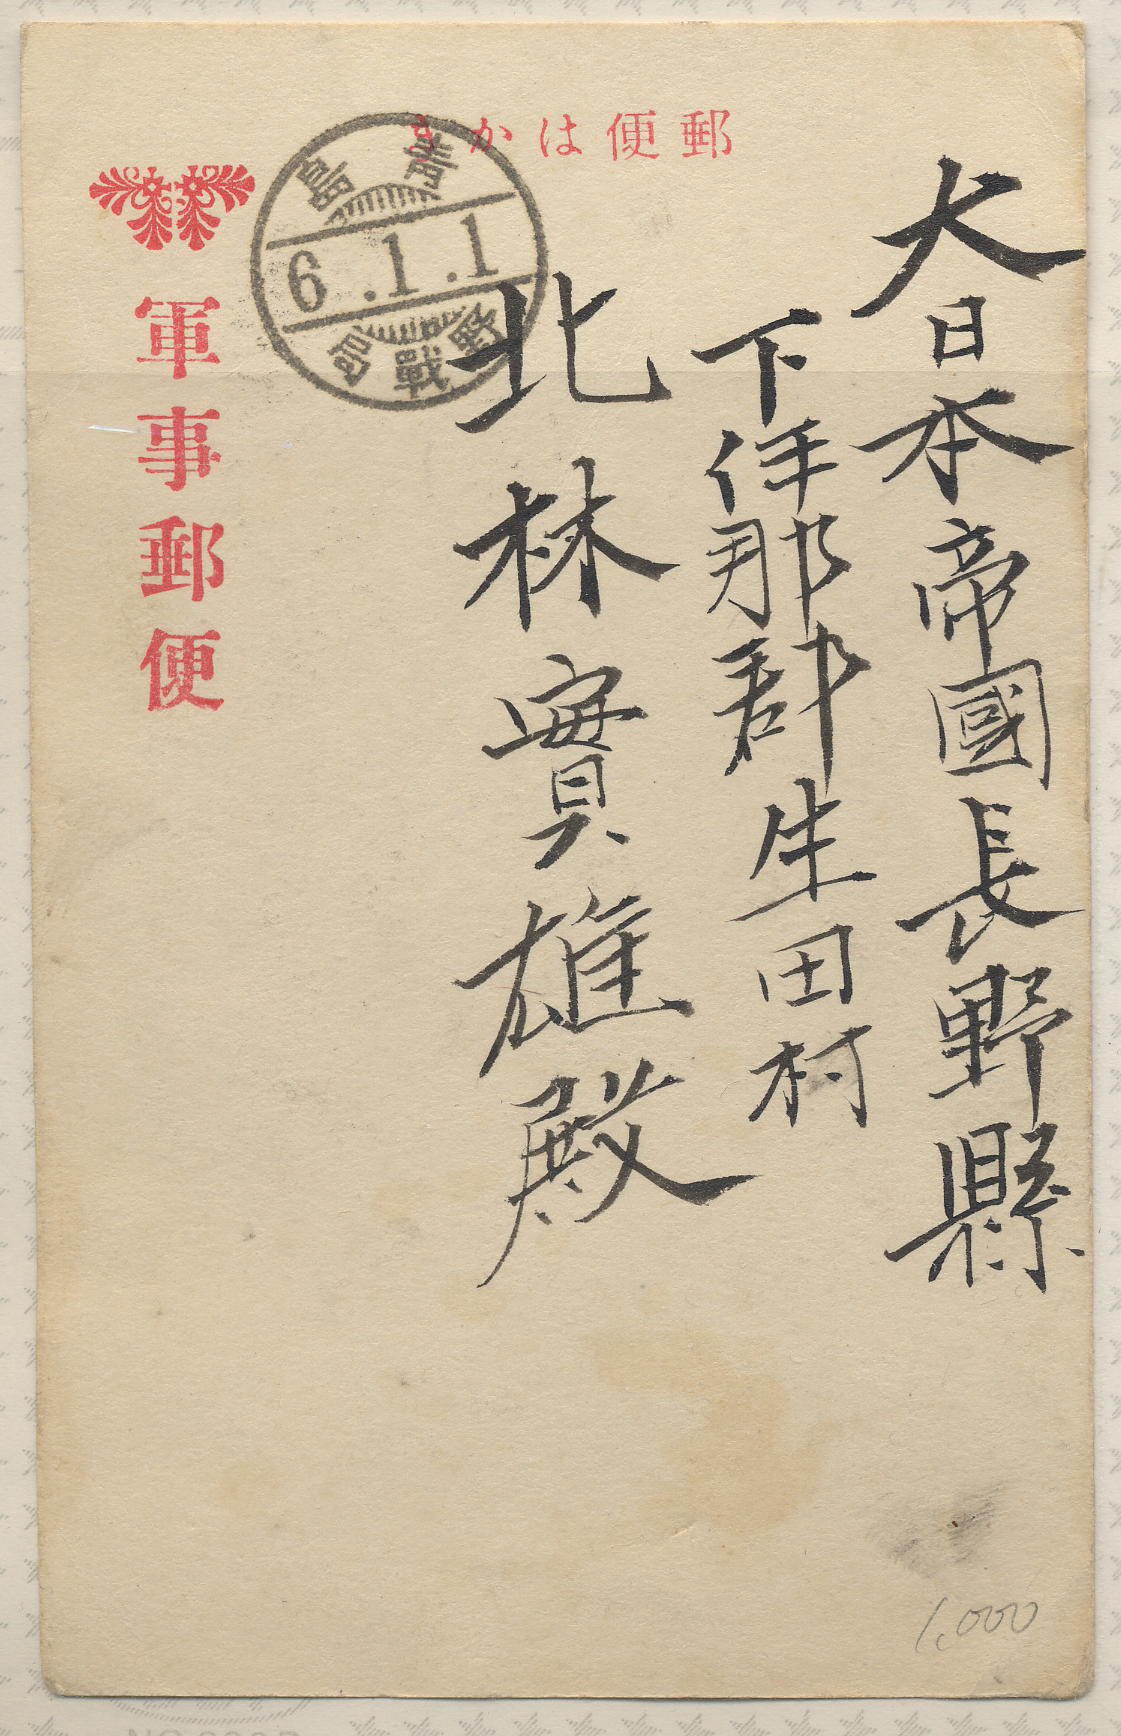 郵便はかき
大日本帝國長野縣
下伊那郡生田村
北林實雄殿
青島
6.1.1
野戰局
軍事郵便
1,000